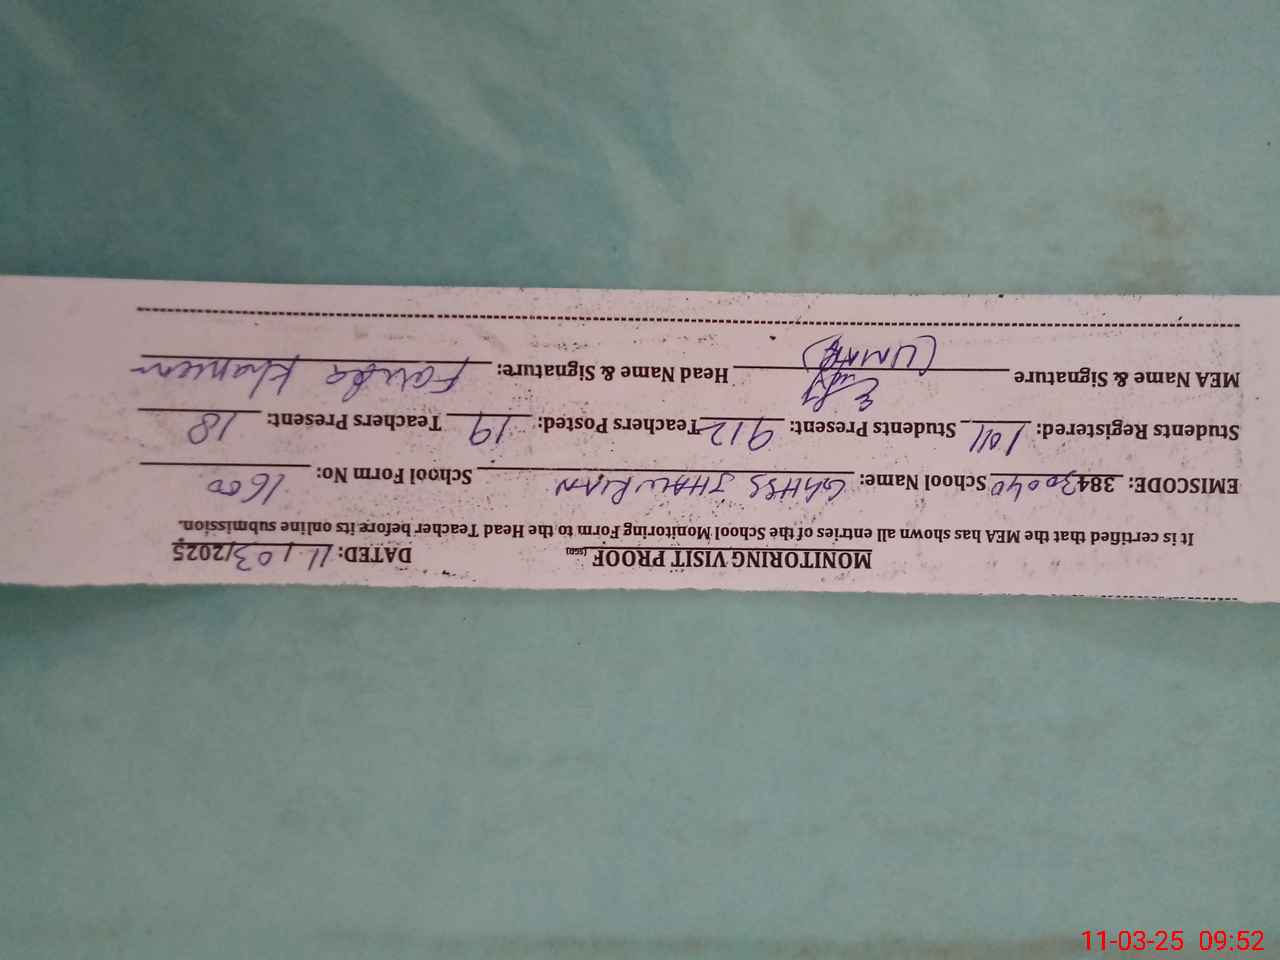 MONITORING VISIT PROOF (SGD) DATED: 11/03/2025
It is certified that the MEA has shown all entries of the School Monitoring Form to the Head Teacher before its online submission.
EMISCODE: 38430040 School Name: GGHSS JHAWRIAN School Form No: 1600
Students Registered: 1011 Students Present: 912 Teachers Posted: 19 Teachers Present: 18
MEA Name & Signature (UMAR) Head Name & Signature: Farida Khanem
11-03-25 09:52